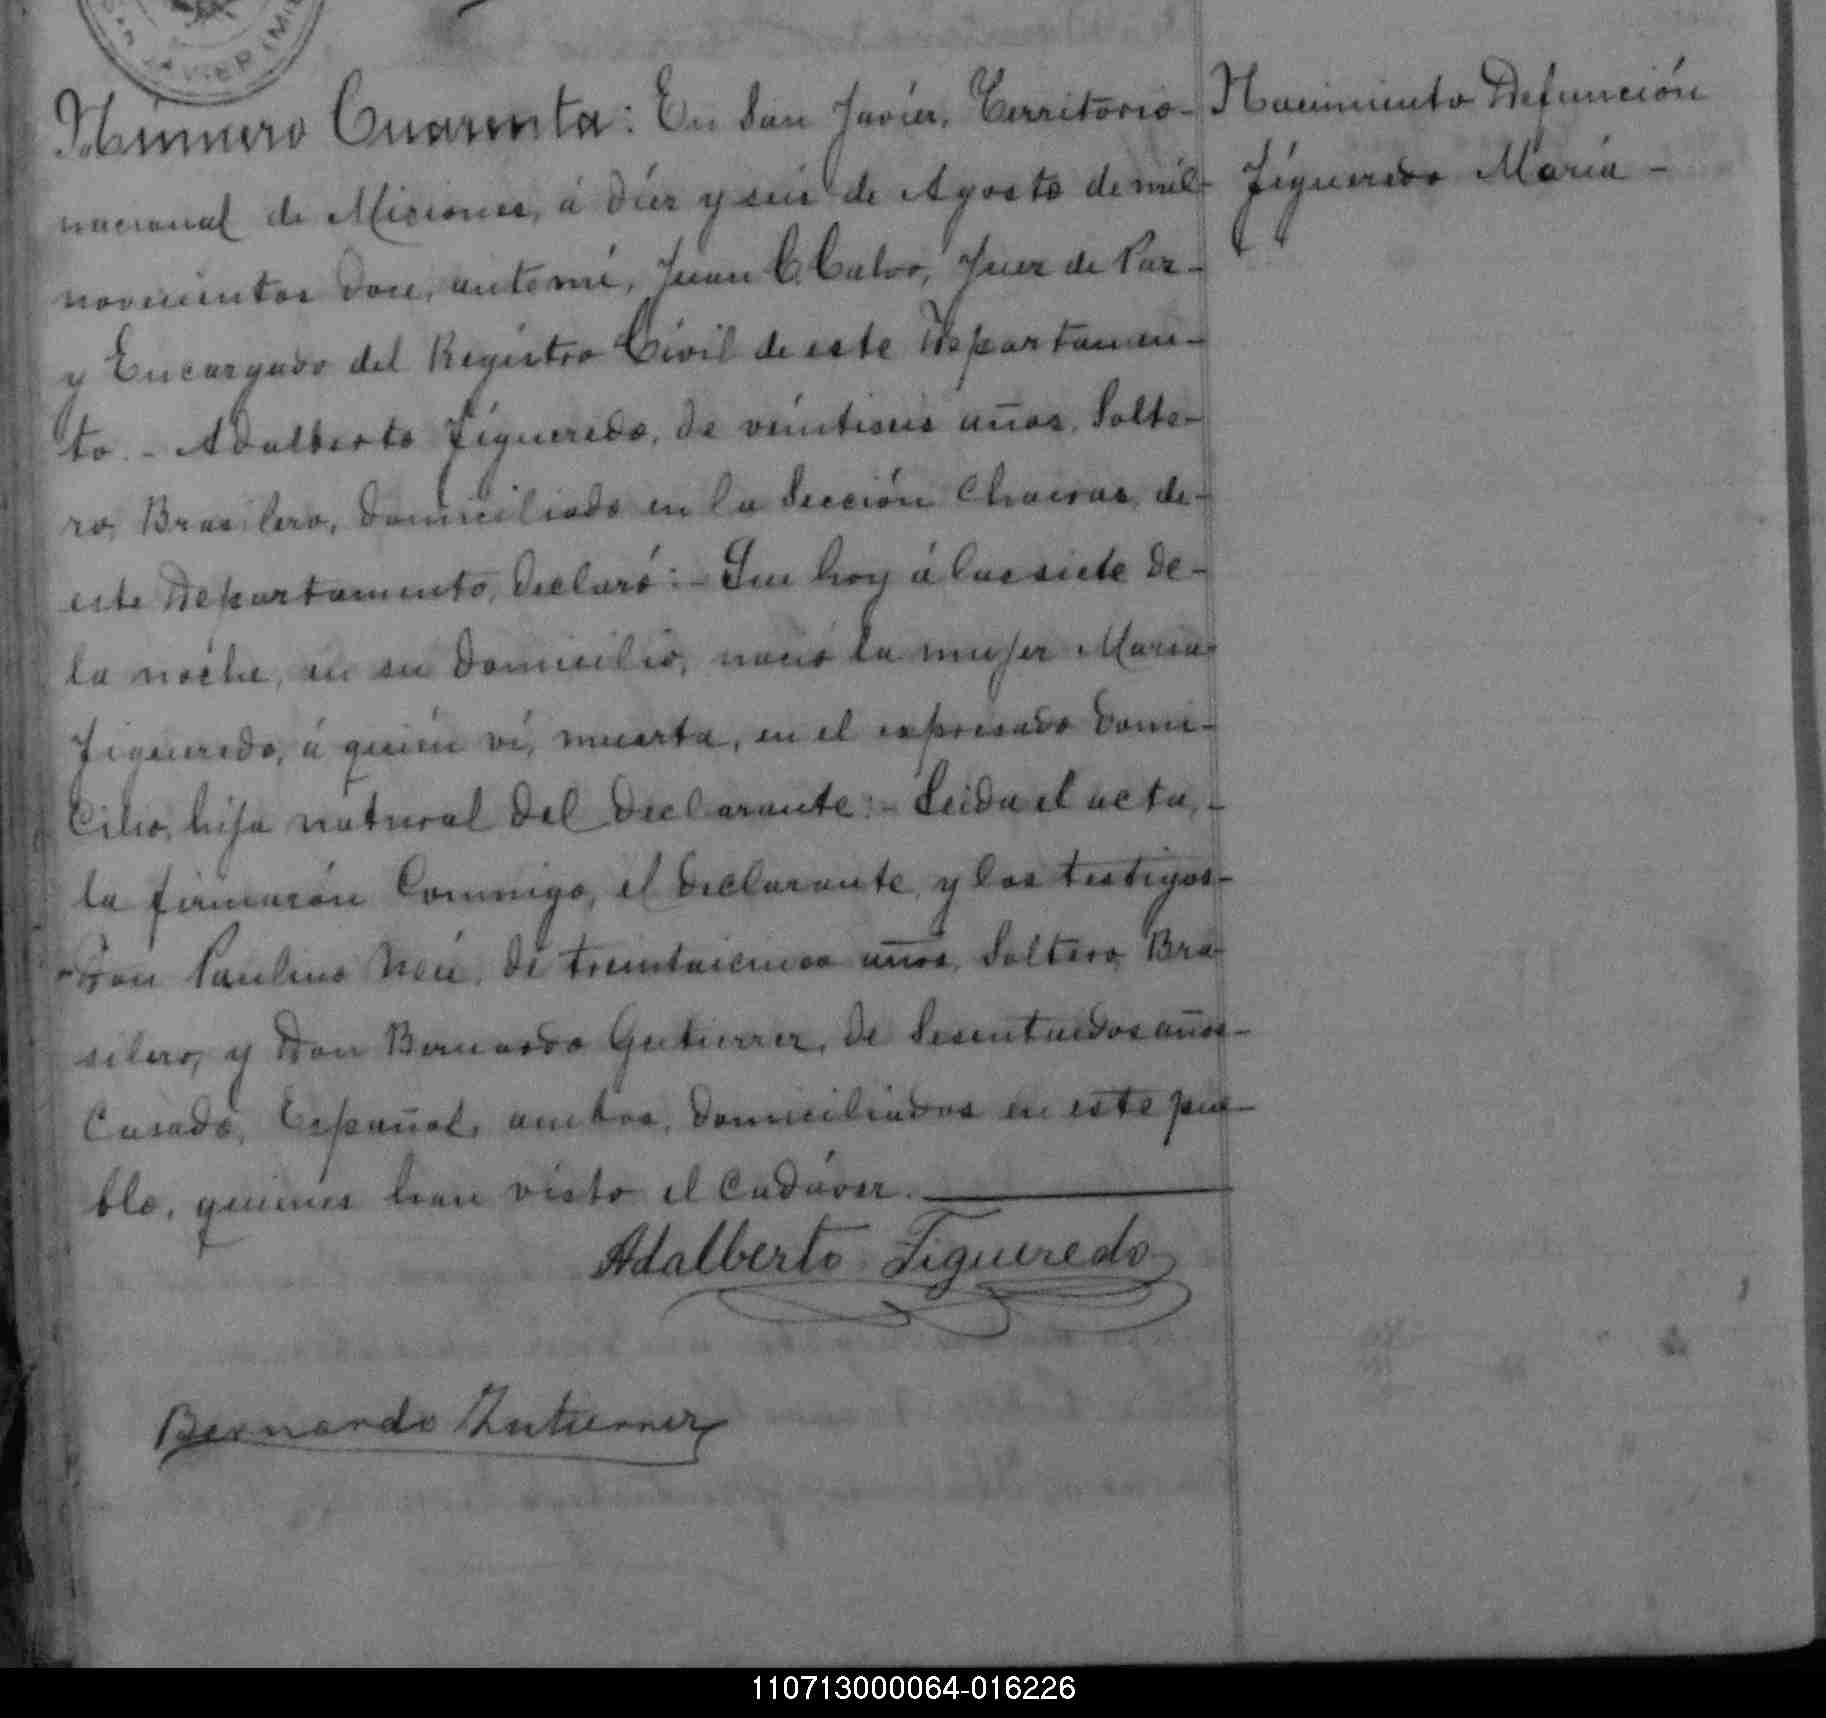 Número Cuarenta: En San Javier, Territorio-
nacional de Misiones, á diez y seis de Agosto de mil-
novecientos doce, ante mí, Juan C. Calvo, Juez de Paz-
y Encargado del Registro Civil de este Departamen-
to.- Adalberto Figueredo, de veintiseis años, Solte-
ro, Brasilero, domiciliado en la Sección Chacras, de-
este Departamento, declaró:- Que hoy á las siete de-
la noche, en su domicilio, nació la mujer María
Figueredo, á quién ví, muerta, en el expresado domi-
cilio, hija natural del declarante:- Leida el acta,-
la firmarón Conmigo, el declarante, y los testigos-
Don Paulino de treintaicinco años, Soltero, Bra-
silero, y Don Bernardo Gutierrez, de Sesentaidos años-
Casado, Español, ambos, domiciliados en este pue-
blo, quienes han visto el Cadáver.
Adalberto Figueredo
Bernardo Gutierrez
Nacimiento Defunción
Figueredo María -
110713000064-016226